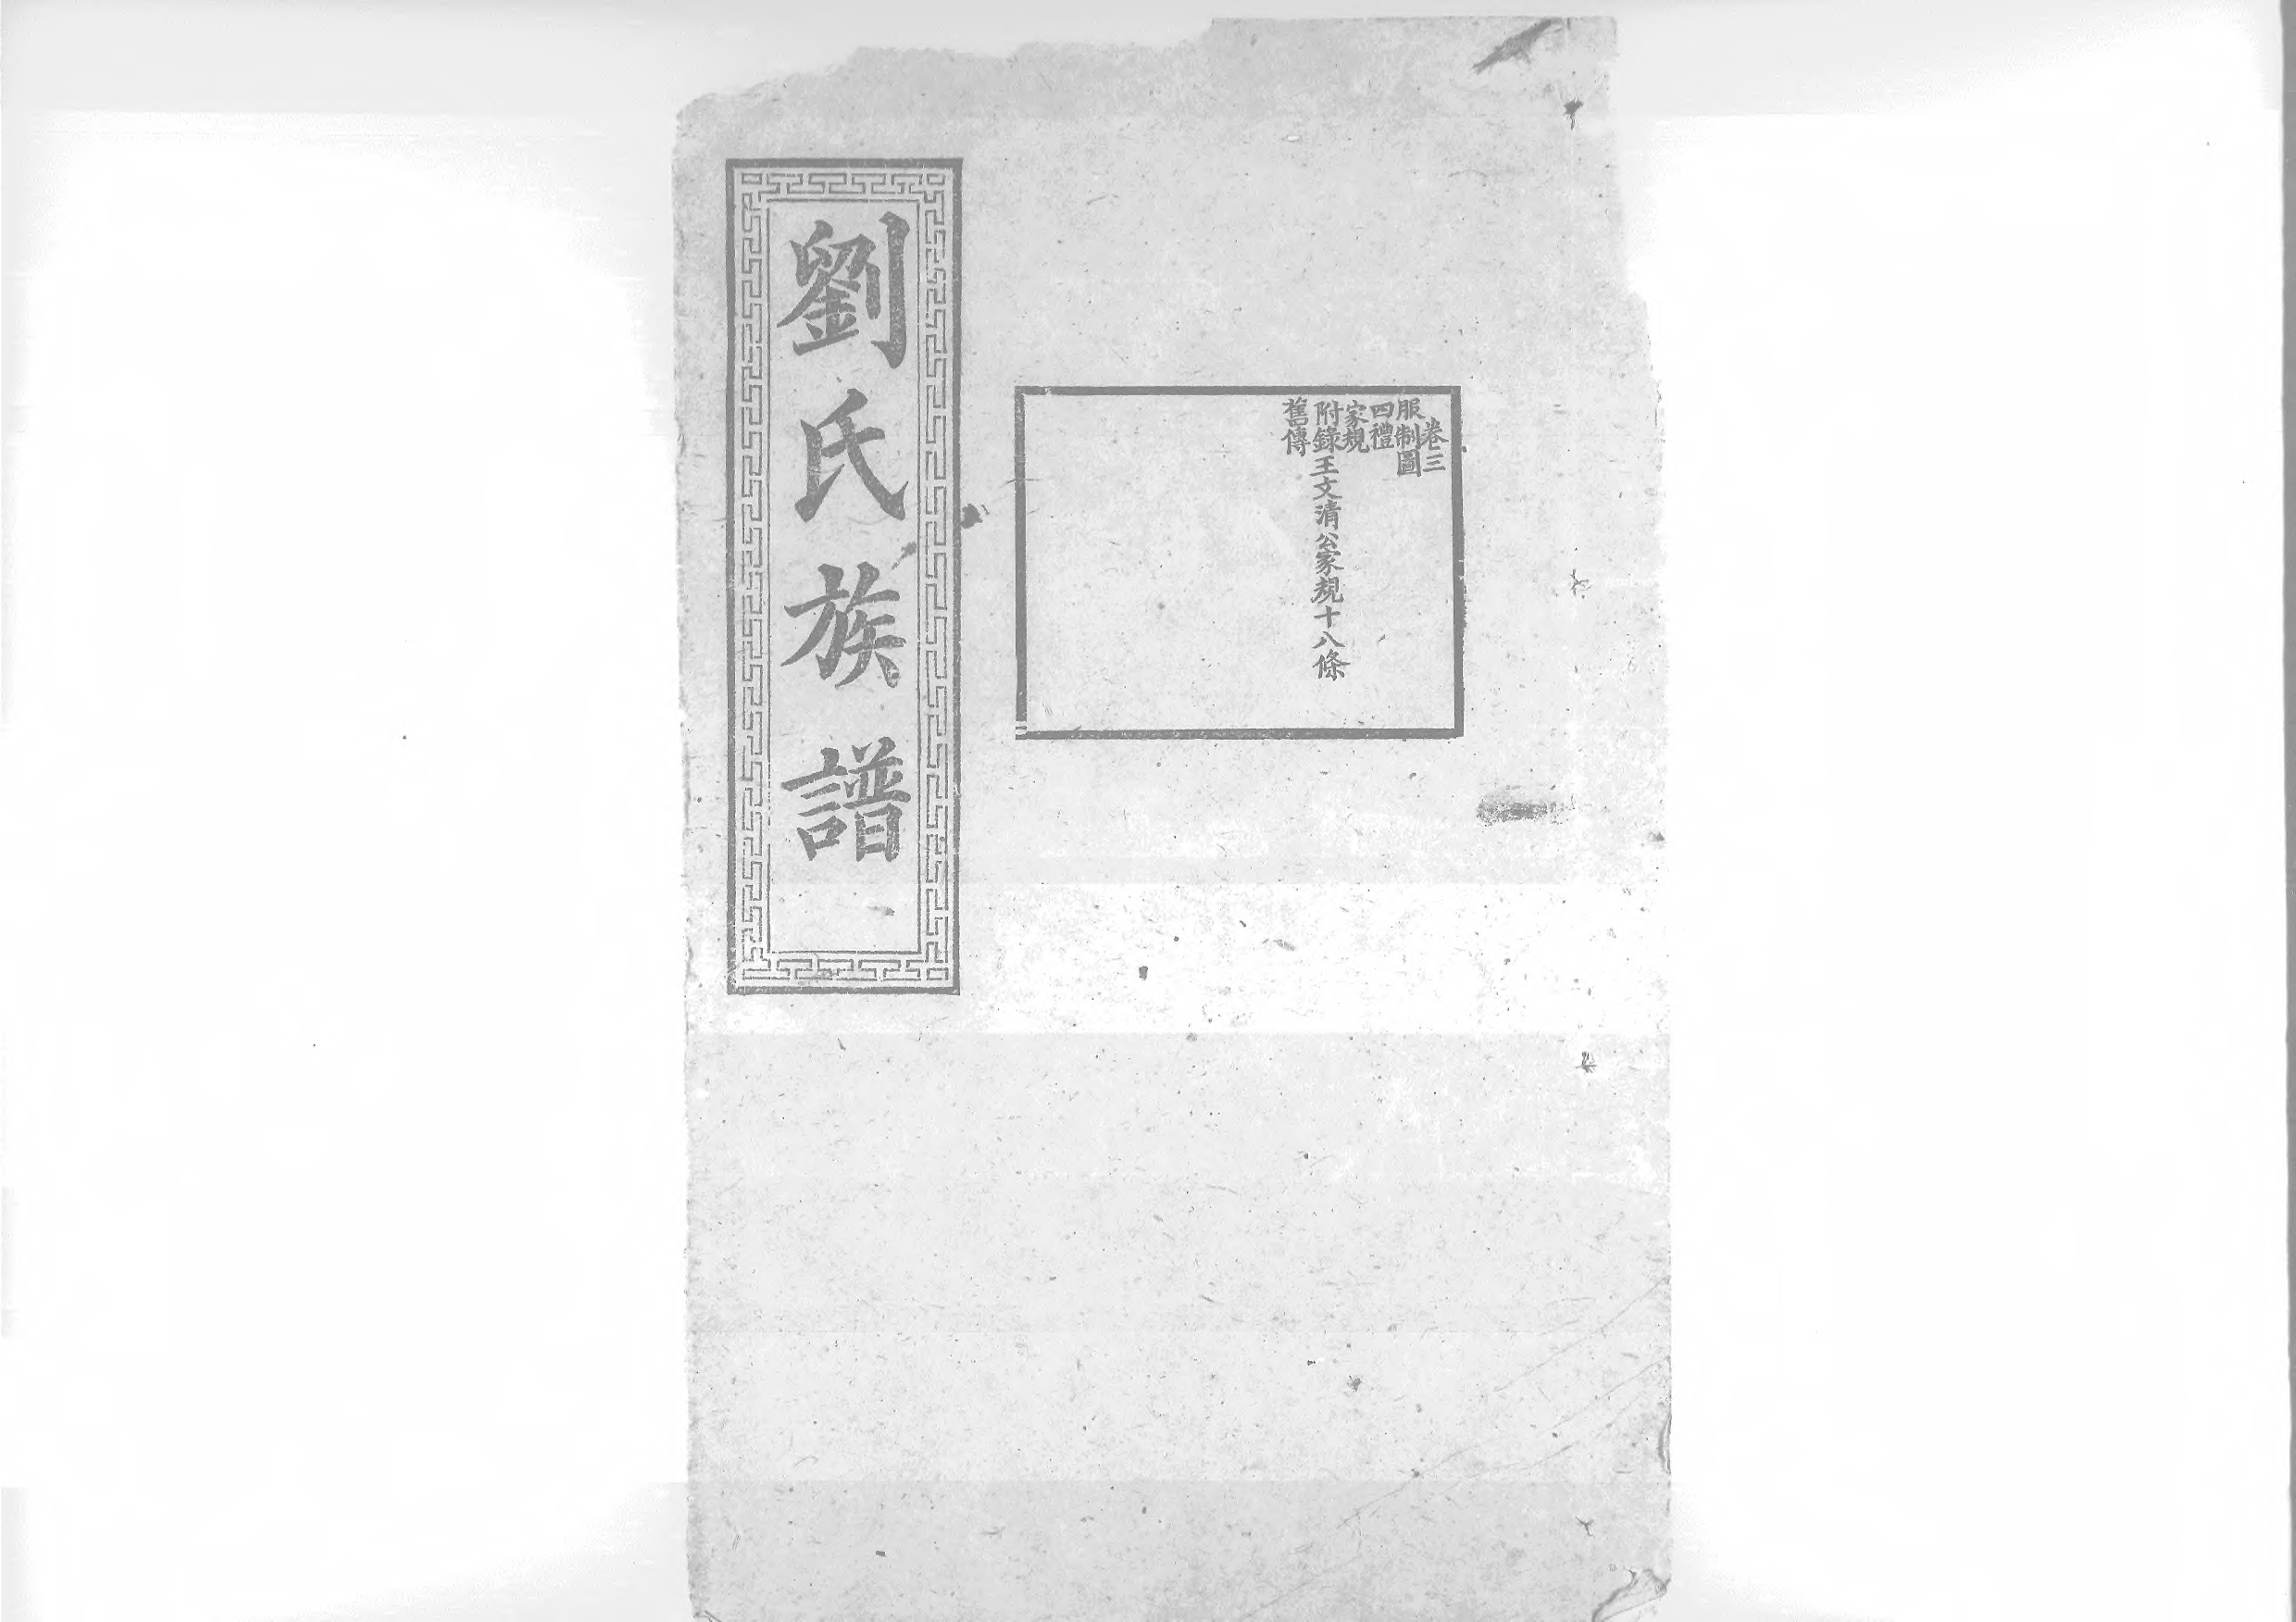 劉氏族譜
卷三
服制圖
四禮
家規
附錄王文清公家規十八條
舊傳